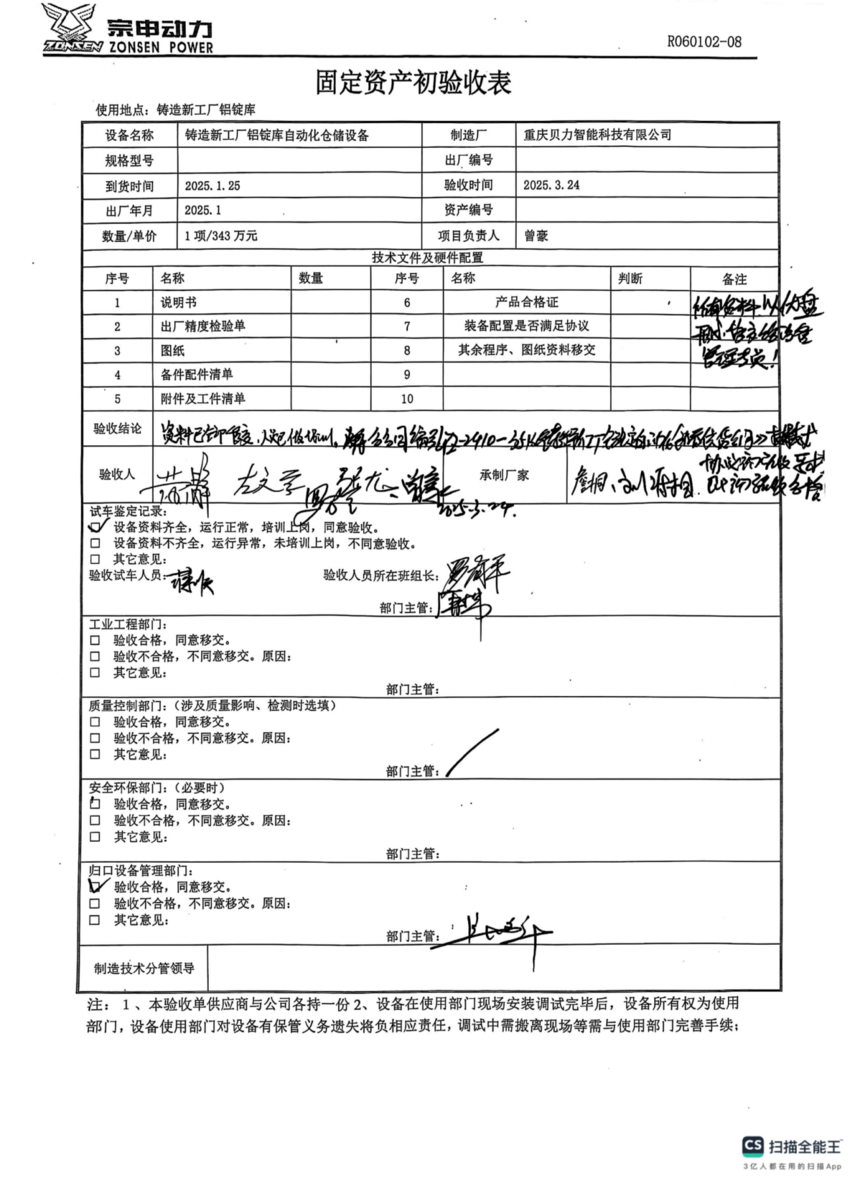 宗申动力
ZONSEN
ZONSEN POWER
R060102-08
固定资产初验收表
使用地点：铸造新工厂铝锭库
设备名称 铸造新工厂铝锭库自动化仓储设备 制造厂 重庆贝力智能科技有限公司
规格型号 出厂编号
到货时间 2025.1.25 验收时间 2025.3.24
出厂年月 2025.1 资产编号
数量/单价 1 项/343 万元 项目负责人 曾豪
技术文件及硬件配置
序号 名称 数量 序号 名称 判断 备注
1 说明书 6 产品合格证
2 出厂精度检验单 7 装备配置是否满足协议
3 图纸 8 其余程序、图纸资料移交
4 备件配件清单 9
5 附件及工件清单 10
管理专员！
验收结论 资料已
验收人 左文学 承制厂家
2025.3.24.
试车鉴定记录：
☑ 设备资料齐全，运行正常，培训上岗，同意验收。
□ 设备资料不齐全，运行异常，未培训上岗，不同意验收。
□ 其它意见：
验收试车人员： 验收人员所在班组长：
部门主管：
工业工程部门：
□ 验收合格，同意移交。
□ 验收不合格，不同意移交。原因：
□ 其它意见：
部门主管：
质量控制部门：（涉及质量影响、检测时选填）
□ 验收合格，同意移交。
□ 验收不合格，不同意移交。原因：
□ 其它意见：
部门主管：
安全环保部门：（必要时）
□ 验收合格，同意移交。
□ 验收不合格，不同意移交。原因：
□ 其它意见：
部门主管：
归口设备管理部门：
☑ 验收合格，同意移交。
□ 验收不合格，不同意移交。原因：
□ 其它意见：
部门主管：
制造技术分管领导
注： 1 、本验收单供应商与公司各持一份 2、设备在使用部门现场安装调试完毕后，设备所有权为使用
部门，设备使用部门对设备有保管义务遗失将负相应责任，调试中需搬离现场等需与使用部门完善手续；
CS 扫描全能王
3亿人都在用的扫描App